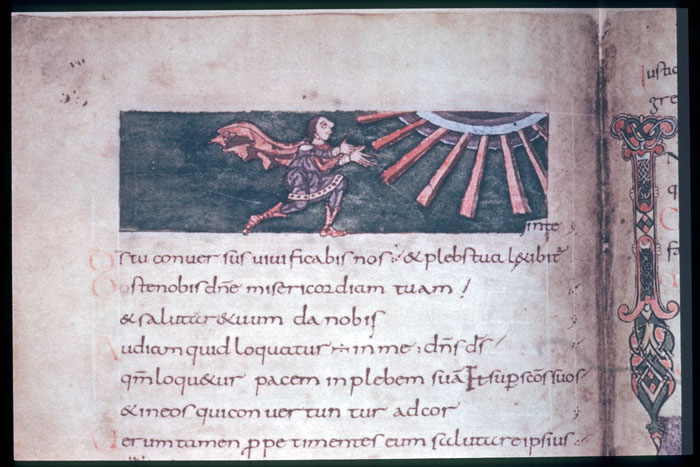 in te
Ds tu conuersus uiuificabis nos · & plebs tua l&abit̄
Ostende nobis dn̄e misericordiam tuam
& salutare tuum da nobis
Audiam quid loquatur in me · dn̄s ds̄
qm̄ loqu&ur pacem in plebem suā Et sup scōs suos
& in eos qui conuertuntur ad cor
Uerumtamen ꝓpe timentes eum salutare ipsius
iustic
gre